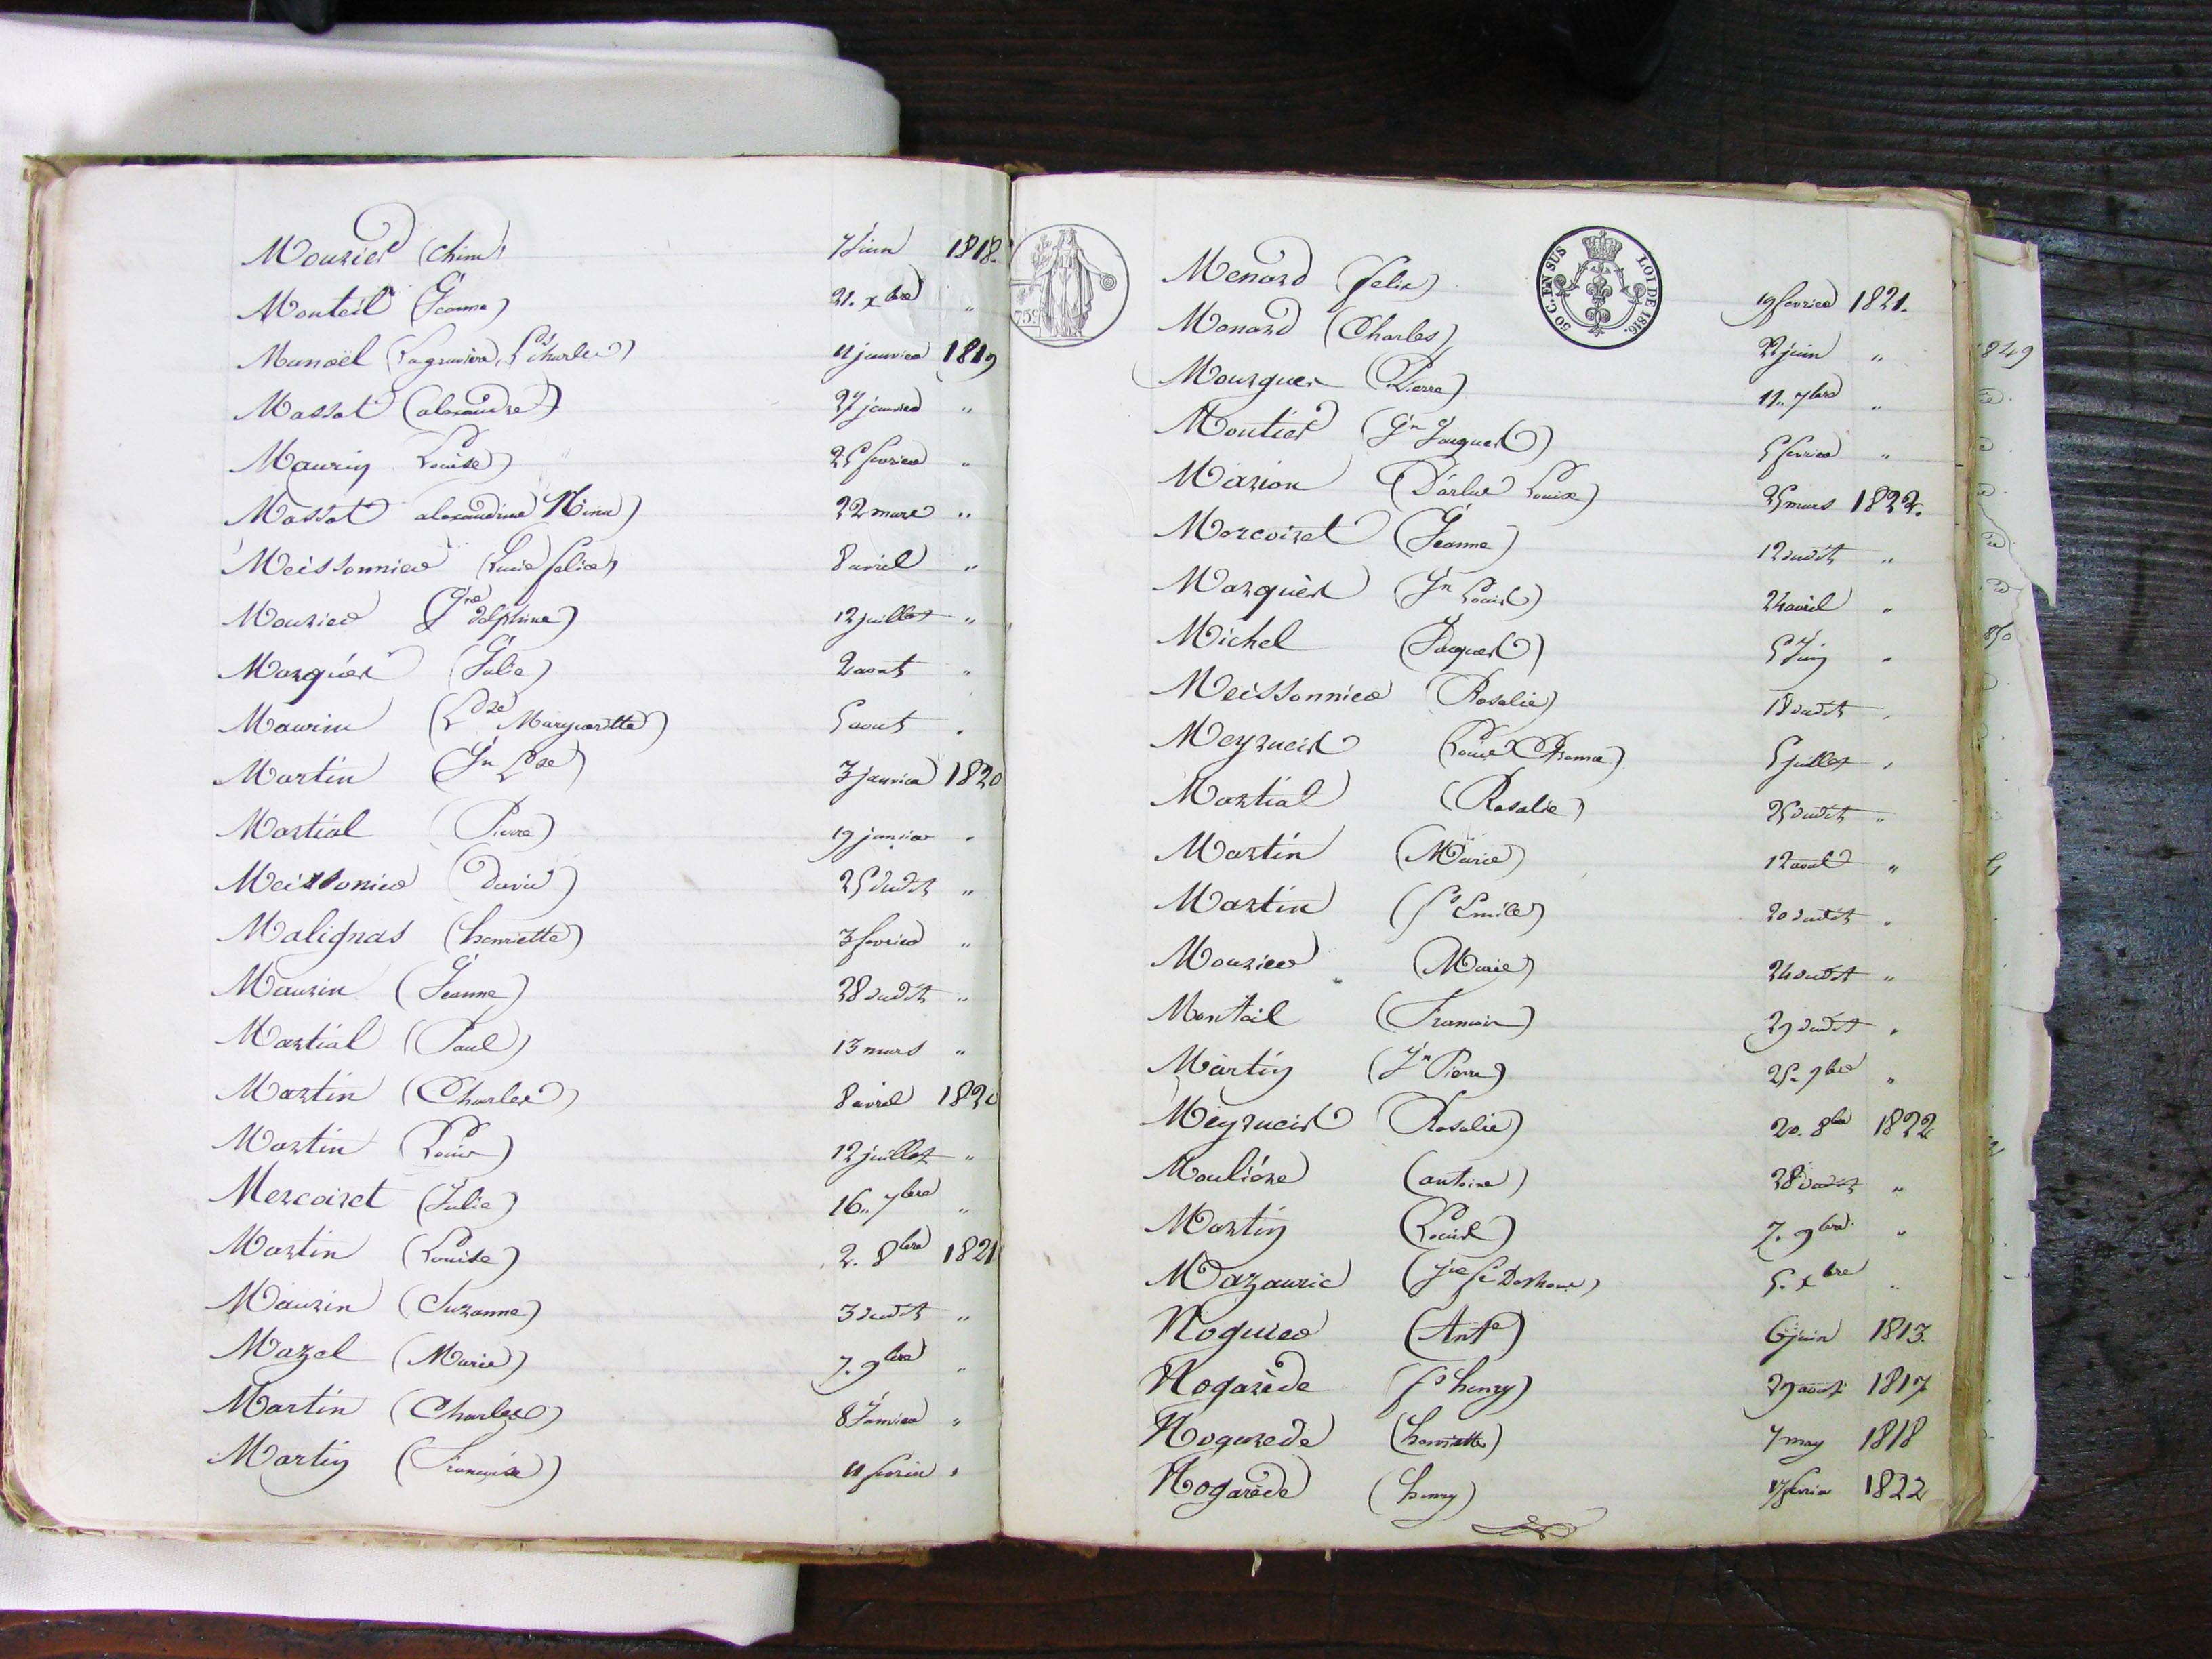 Mourier (Chim) 7 Juin 1818.
Monteil (Jeanne) 21. xbre "
Manoël (Lagravière, Ls Charles) 11 janvier 1819
Massot (alexandre) 27 janvier "
Maurin Louise) 25 fevrier "
Massot alexandrine Nina) 22 mars "
Meissonnier (Lucie felice) 8 avril "
Mourier (Jne delphine) 12 juillet "
Marquès (Julie) 2 aout "
Maurin (Lse Margueritte) 5 aout "
Martin (Jn Lse) 3 janvier 1820
Martial (Pierre) 19 janvier "
Meissonier (David) 25 dudit "
Malignas (henriette) 3 fevrier "
Maurin (Jeanne) 28 dudit "
Martial (Paul) 13 mars "
Martin (Charles) 8 avril 1820
Martin (Louis) 12 juillet "
Mercoiret (Julie) 16.. 7bre "
Martin (Louise) 2. 8bre 1821
Maurin (Suzanne) 3 dudit "
Mazel (Marie) 7. 9bre "
Martin (Charles) 8 Janvier "
Martin (Francoise) 11 fevrier "
75c
50 C. EN SUS LOI DE 1816.
Menard (felix) 19 fevrier 1821.
Menard (Charles) 22 juin "
Mourgues (Pierre) 11.. 7bre "
Moutier (Jn Jacques) 5 fevrier "
Marion (Darlue Louis) 25 mars 1822.
Mercoiret (Jeanne) 12 dudit "
Marquès (Jn Louis) 24 avril "
Michel (Jacques) 5 Juin "
Meissonnier (Rosalie) 18 dudit "
Meyrueis (Louis) 5 juillet "
Martial (Rosalie) 25 dudit "
Martin (Marie) 12 aout "
Martin (fs Emile) 20 dudit "
Mourier (Marie) 24 dudit "
Monteil (Francois) 29 dudit "
Martin (Jn Pierre) 25. 9bre "
Meyrueis (Rosalie) 20. 8bre 1822
Moulière (antoine) 28 dudit "
Martin (Louis) 7. 9bre "
Mazauric 5. xbre "
Noguier (Ante) 6 juin 1813.
Nogarède (fs henry) 29 aout 1817
Nogarede (henriette) 7 may 1818
Nogarède (henry) 17 fevrier 1822
1849